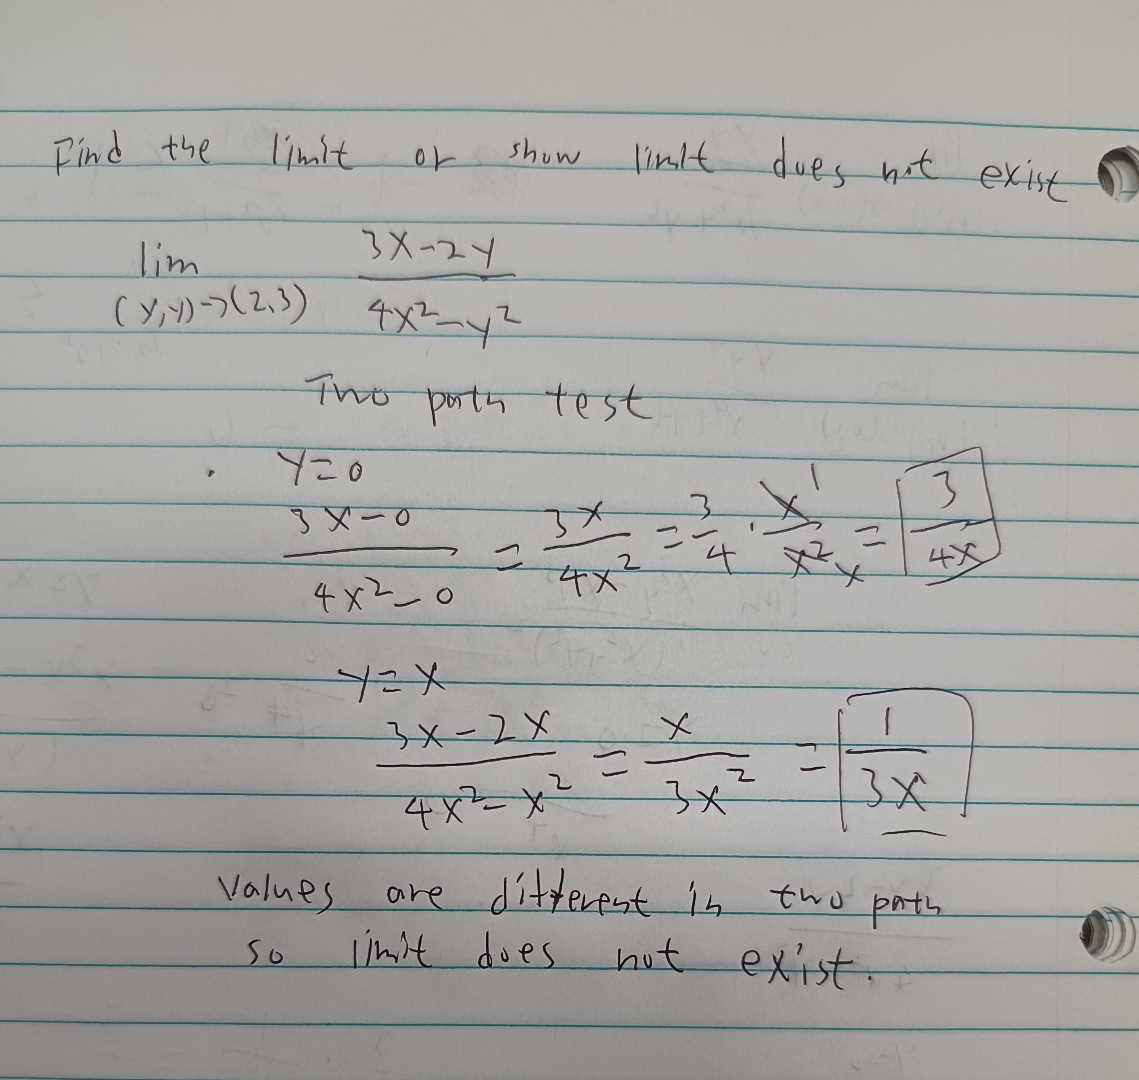 Find the limit or show limit does not exist
lim (x,y)->(2,3) (3x-2y)/(4x²-y²)
Two path test
. y=0
(3x-0)/(4x²-0) = 3x/4x² = 3/4 · x/x² 1 x = 3/4x
y=x
(3x-2x)/(4x²-x²) = x/3x² = 1/3x
Values are different in two path
so limit does not exist.